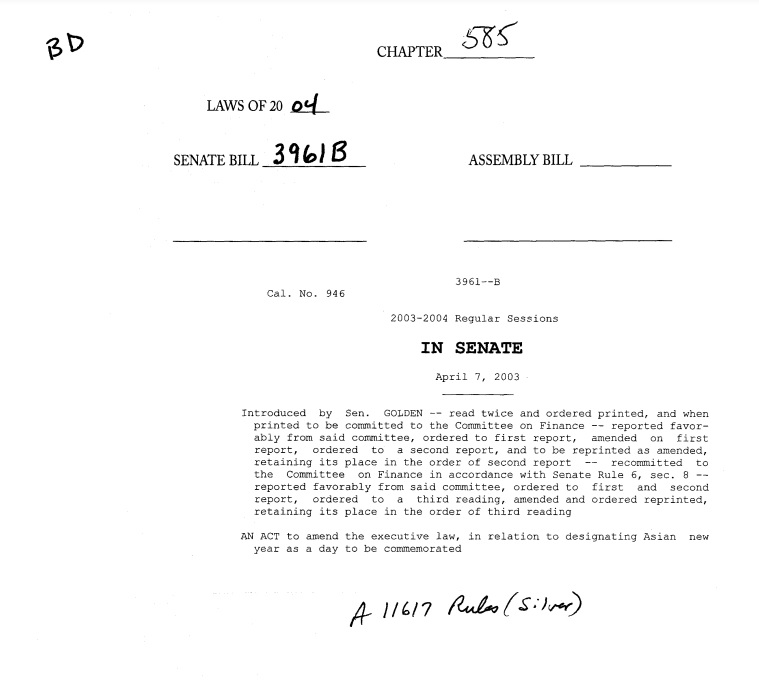 BD
CHAPTER 585
LAWS OF 20 04
SENATE BILL 3961B
ASSEMBLY BILL
3961--B
Cal. No. 946
2003-2004 Regular Sessions
IN SENATE
April 7, 2003
Introduced by Sen. GOLDEN -- read twice and ordered printed, and when
printed to be committed to the Committee on Finance -- reported favor-
ably from said committee, ordered to first report, amended on first
report, ordered to a second report, and to be reprinted as amended,
retaining its place in the order of second report -- recommitted to
the Committee on Finance in accordance with Senate Rule 6, sec. 8 --
reported favorably from said committee, ordered to first and second
report, ordered to a third reading, amended and ordered reprinted,
retaining its place in the order of third reading
AN ACT to amend the executive law, in relation to designating Asian new
year as a day to be commemorated
A 11617 Rules (Silver)